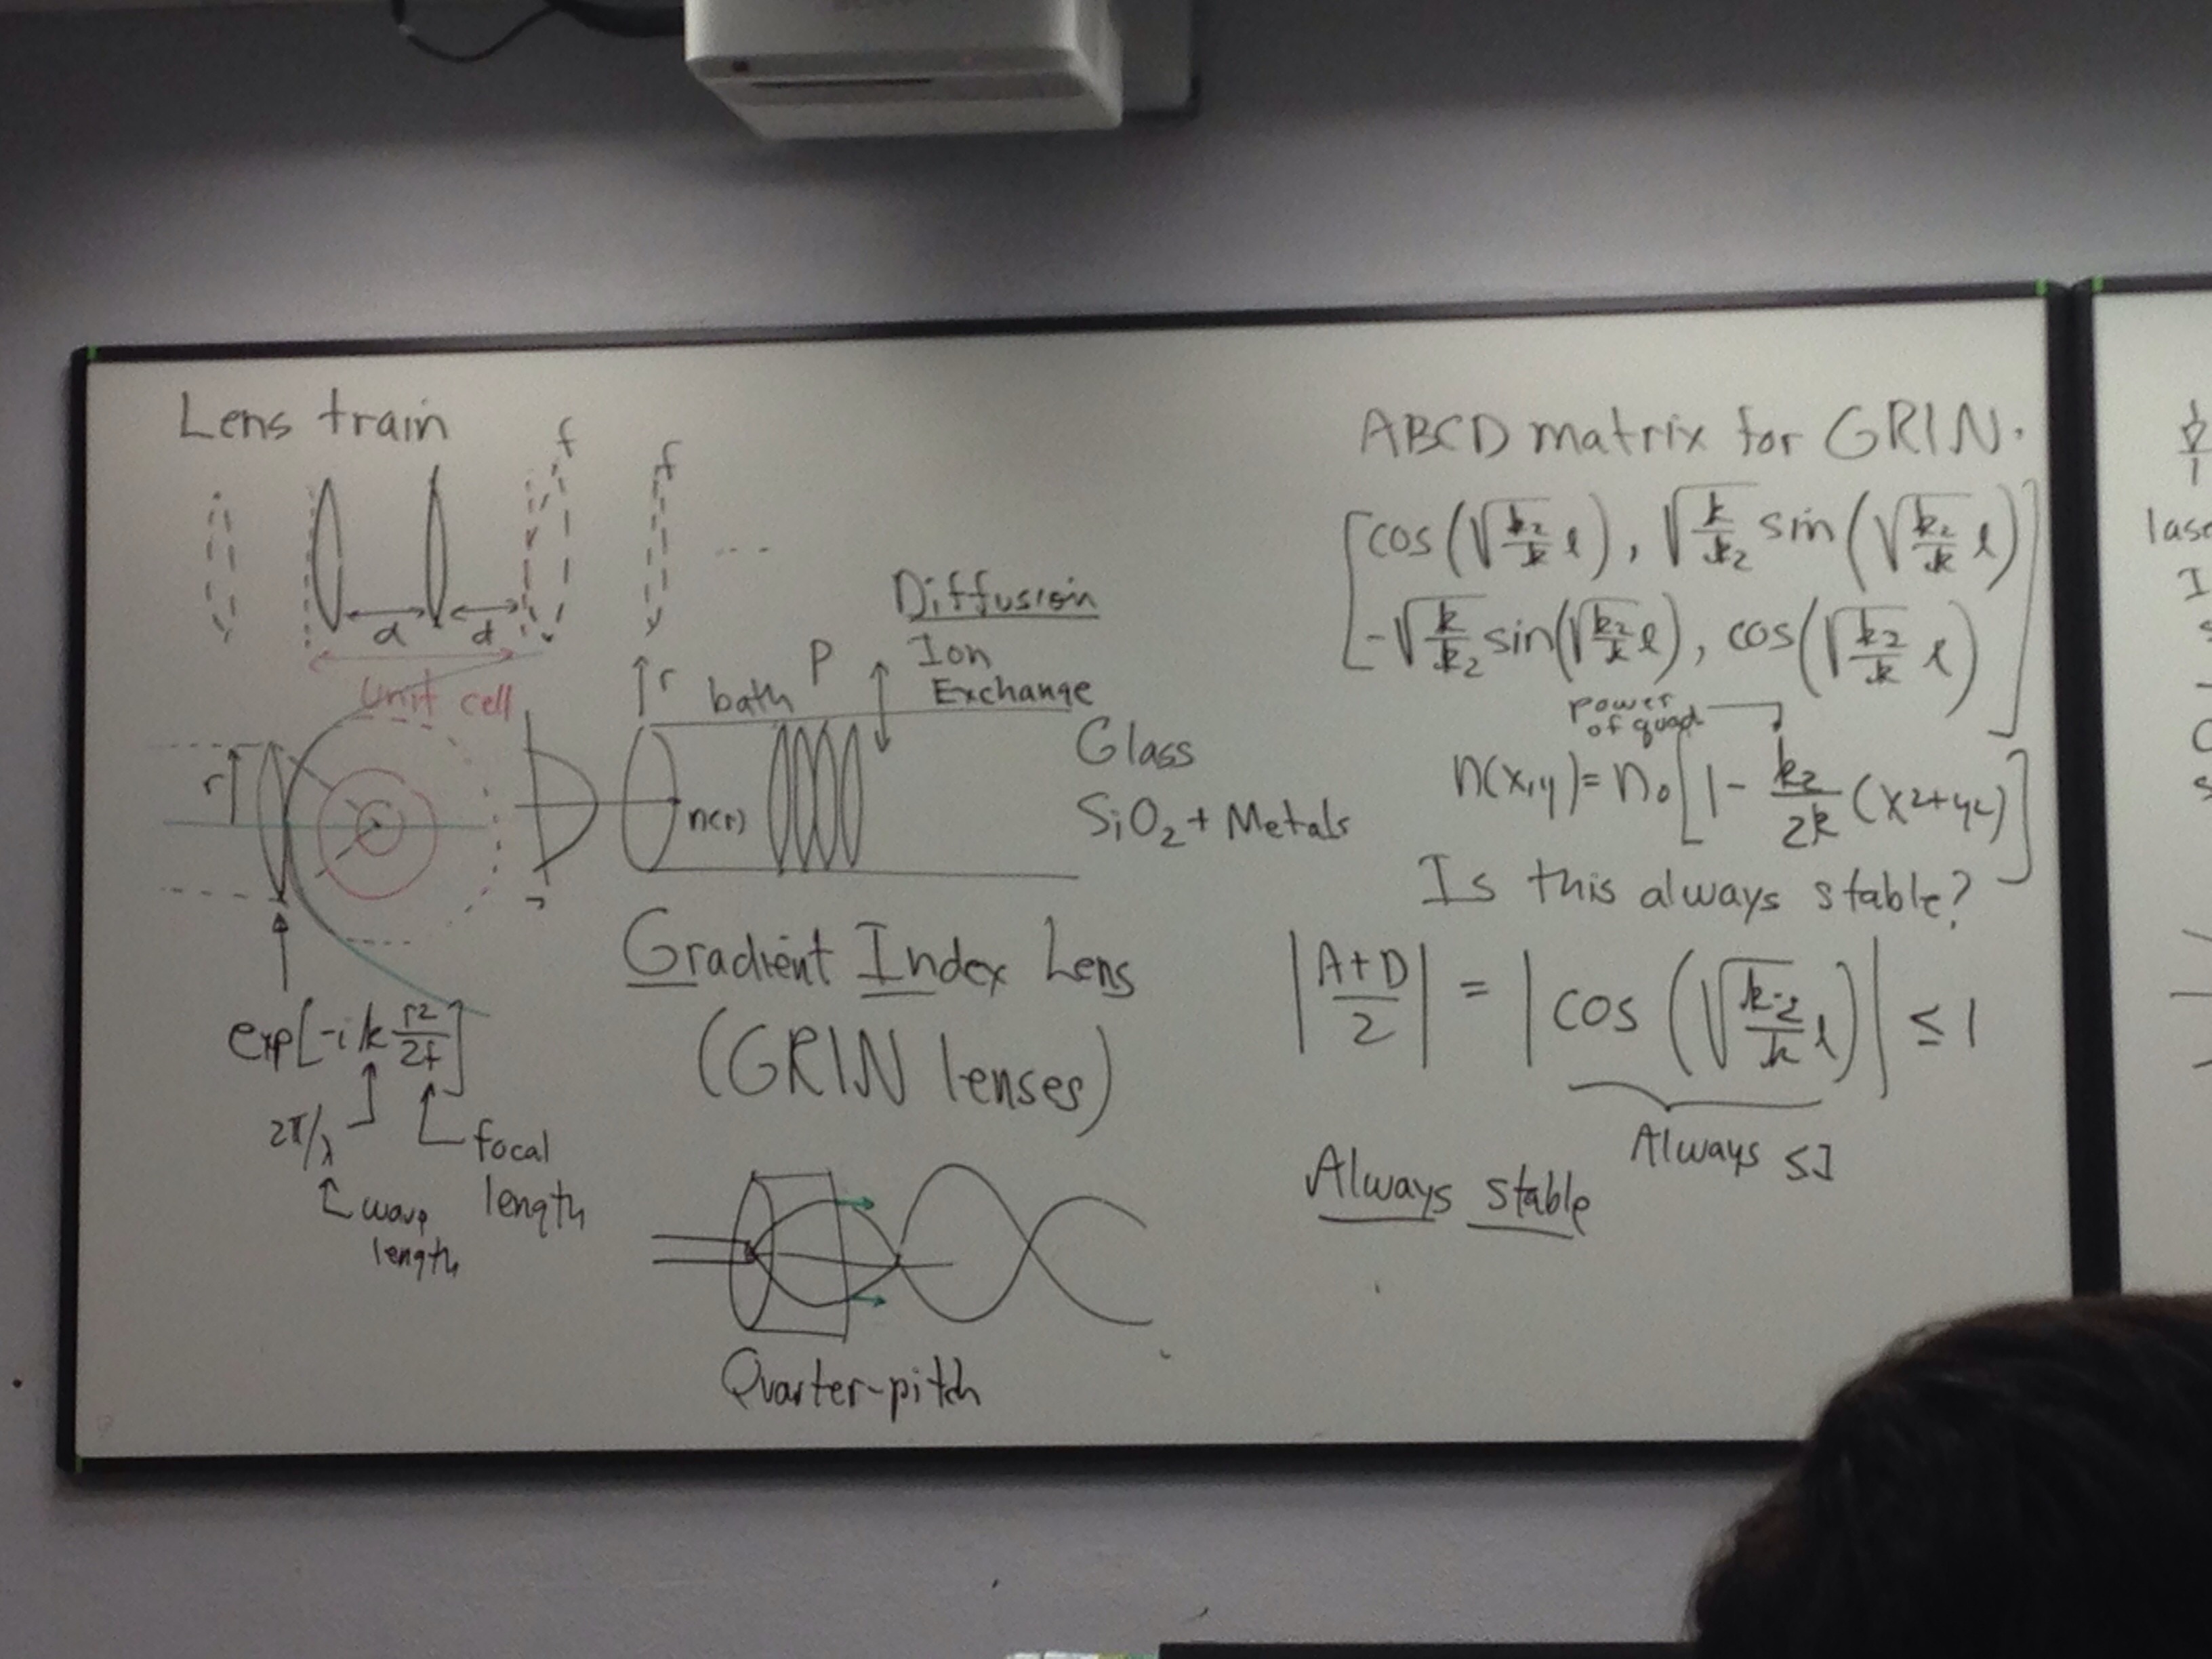 Lens train
f
f
...
d
d
Unit cell
r
exp[-ik r²/2f]
2π/λ
focal
length
wave
length
Diffusion
Ion
Exchange
r
bath
P
n(r)
Glass
SiO₂ + Metals
Gradient Index Lens
(GRIN lenses)
Quarter-pitch
ABCD matrix for GRIN.
[cos(√(k₂/k) l), √(k/k₂) sin(√(k₂/k) l)
-√(k/k₂) sin(√(k₂/k) l), cos(√(k₂/k) l)]
power
of quad
n(x,y) = n₀[1 - k₂/2k (x²+y²)]
Is this always stable?
|A+D/2| = |cos(√(k₂/k) l)| ≤ 1
Always ≤1
Always stable
lase
I